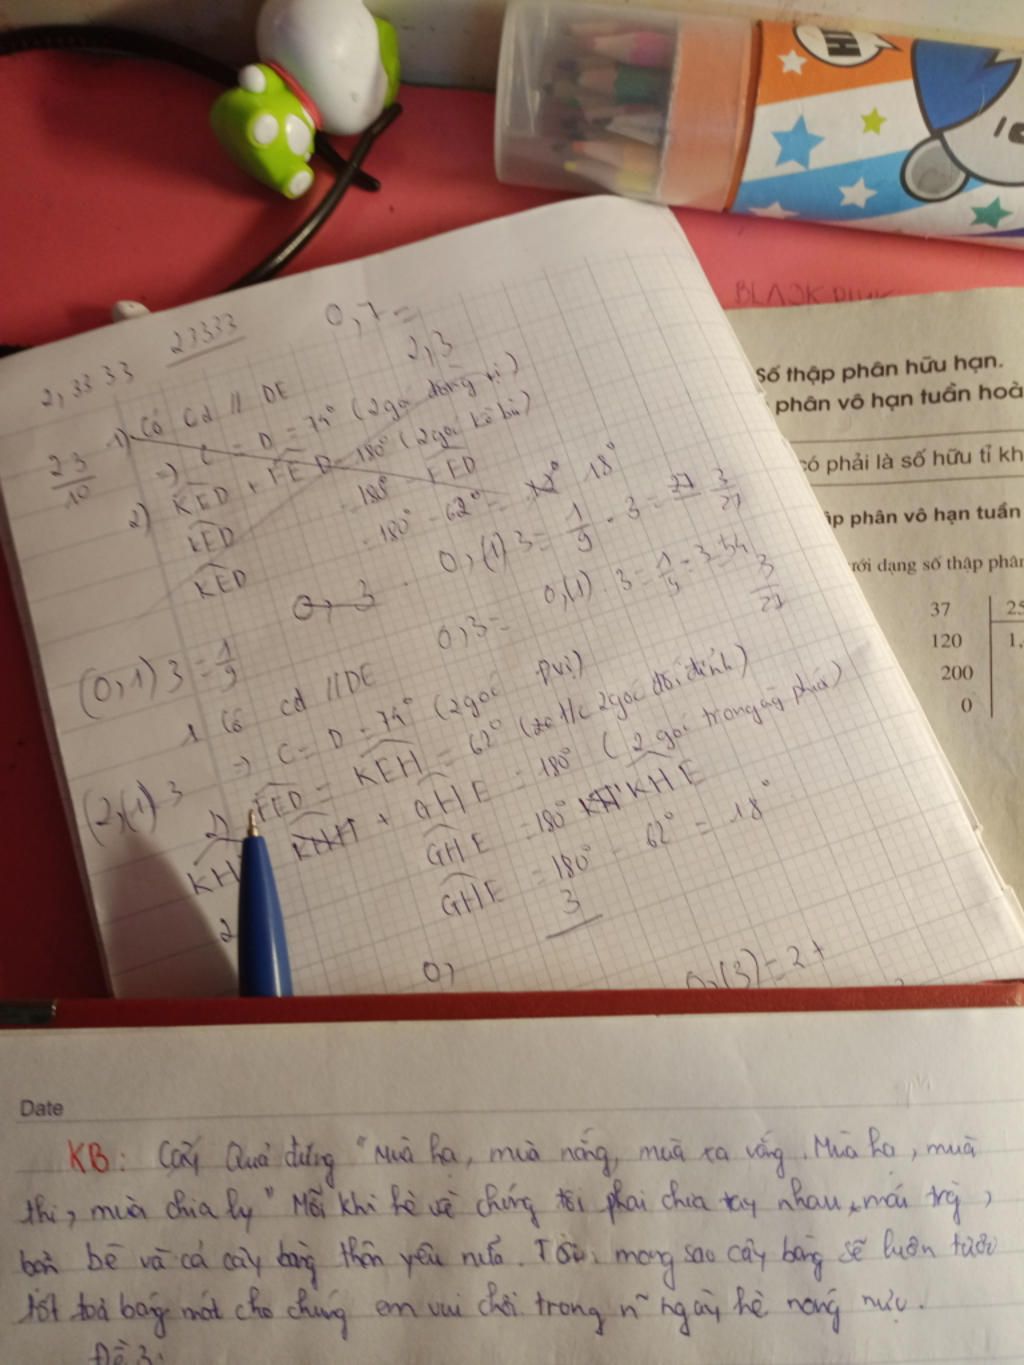 HI
BLACKPINK
2,33 33
23333
0,7 =
2,3
23
10
1) Có Cd // DE
=> C = D = 74° (2 góc đồng vị)
2) KED + FED = 180° (2 góc kề bù)
KED = 180° - FED
KED = 180° - 62° = 18°
0,3
0,(1) 3 = 1/9 . 3 = 3/27
0,3 =
0,(1) . 3 = 1/9
3
27
(0,1) 3 = 1/9
1 Có cd // DE
=> C = D = 74° (2 góc
(2,(1) 3
2) FED = KEH = 62° (2 góc đối đỉnh)
+ GHE = 180° (2 góc trong cùng phía)
GHE = 180° KHE
GHE = 180° - 62° = 18°
3
2
0,
0,(3) = 2 +
Số thập phân hữu hạn.
phân vô hạn tuần hoà
có phải là số hữu tỉ kh
phân vô hạn tuần
dạng số thập phân
37 25
120 1,
200
0
Date
KB: Cây Quả đúng "Mùa hạ, mùa nắng, mùa ra vắng. Mùa hạ, mùa
thi, mùa chia ly" Mỗi khi hè về chúng tôi phải chia tay nhau, mái trg,
bạn bè và cả cây bàng thân yêu nữa. Tôi mong sao cây bàng sẽ luôn tươi
tốt toả bóng mát cho chúng em vui chơi trong n~ ngày hè nóng nực.
Đề 3: